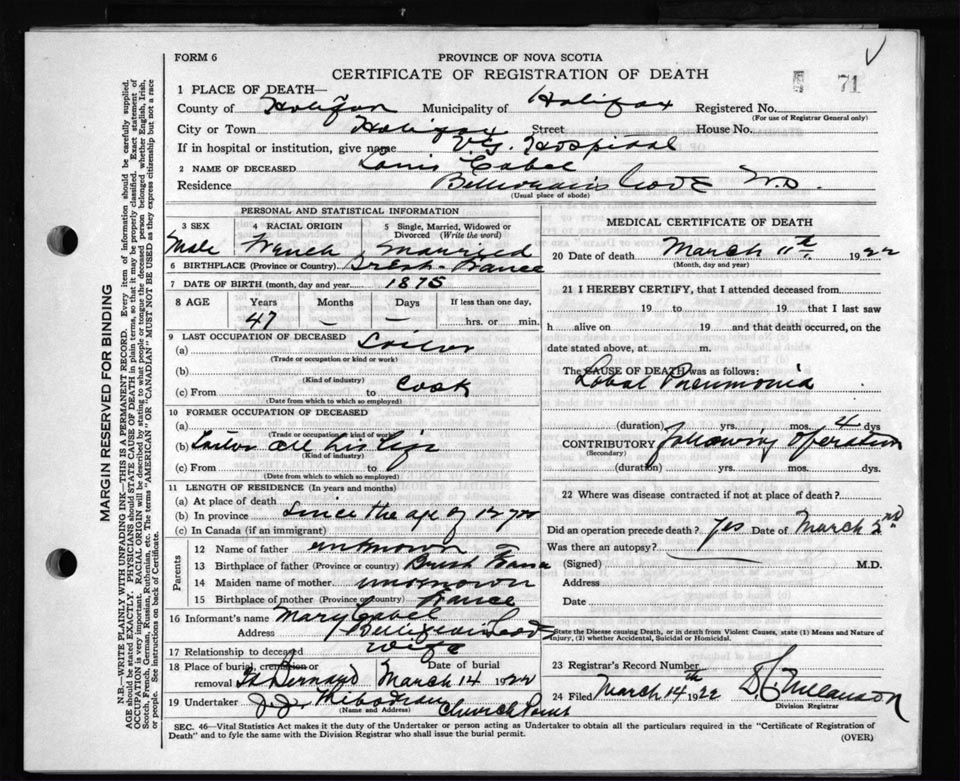 FORM 6
PROVINCE OF NOVA SCOTIA
CERTIFICATE OF REGISTRATION OF DEATH
71
1 PLACE OF DEATH—
County of Halifax Municipality of Halifax Registered No.
(For use of Registrar General only)
City or Town Halifax Street House No.
If in hospital or institution, give name V.G. Hospital
2 NAME OF DECEASED Louis Cabel
Residence Cove N.S.
(Usual place of abode)
PERSONAL AND STATISTICAL INFORMATION
3 SEX 4 RACIAL ORIGIN 5 Single, Married, Widowed or Divorced (Write the word)
Male French Married
6 BIRTHPLACE (Province or Country) Brest-France
7 DATE OF BIRTH (month, day and year) 1875
8 AGE Years Months Days If less than one day,
47 — — hrs. or min.
9 LAST OCCUPATION OF DECEASED
(a) Sailor
(Trade or occupation or kind or work)
(b)
(Kind of industry)
(c) From to Cook
(Date from which to which so employed)
10 FORMER OCCUPATION OF DECEASED
(a)
(Trade or occupation or kind of work)
(b) Sailor all his life
(Kind of industry)
(c) From to
(Date from which to which so employed)
11 LENGTH OF RESIDENCE (In years and months)
(a) At place of death
(b) In province since the age of 12 yrs
(c) In Canada (if an immigrant)
Parents
12 Name of father unknown
13 Birthplace of father (Province or country) Brest France
14 Maiden name of mother unknown
15 Birthplace of mother (Province or country) France
16 Informant's name Mary Cabel
Address
17 Relationship to deceased wife
18 Place of burial, cremation or removal St Bernard Date of burial March 14 1922
19 Undertaker J.J. Thibodeau
(Name and Address) Church Point
MEDICAL CERTIFICATE OF DEATH
20 Date of death March 11th, 1922
(Month, day and year)
21 I HEREBY CERTIFY, that I attended deceased from
19 to 19 that I last saw
h alive on 19 and that death occurred, on the
date stated above, at m.
The CAUSE OF DEATH was as follows:
Lobal Pneumonia
(duration) yrs. mos. 4 dys
CONTRIBUTORY following operation
(Secondary)
(duration) yrs. mos. dys.
22 Where was disease contracted if not at place of death?
Did an operation precede death? Yes Date of March 2nd
Was there an autopsy?
(Signed) M.D.
Address
Date
State the Disease causing Death, or in death from Violent Causes, state (1) Means and Nature of Injury, (2) whether Accidental, Suicidal or Homicidal.
23 Registrar's Record Number
24 Filed March 14th 1922
Division Registrar
SEC. 46—Vital Statistics Act makes it the duty of the Undertaker or person acting as Undertaker to obtain all the particulars required in the "Certificate of Registration of
Death" and to fyle the same with the Division Registrar who shall issue the burial permit.
(OVER)
MARGIN RESERVED FOR BINDING
N.B.—WRITE PLAINLY WITH UNFADING INK—THIS IS A PERMANENT RECORD. Every item of information should be carefully supplied.
AGE should be stated EXACTLY. PHYSICIANS should STATE CAUSE OF DEATH in plain terms, so that it may be properly classified. Exact statement of
OCCUPATION is very important. RACIAL ORIGIN will be described by stating to what people or tongue the deceased person belonged whether English, Irish,
Scotch, French, German, Russian, Ruthenian, etc. The terms "AMERICAN" or "CANADIAN" MUST NOT BE USED as they express citizenship but not a race
or people. See instructions on back of Certificate.